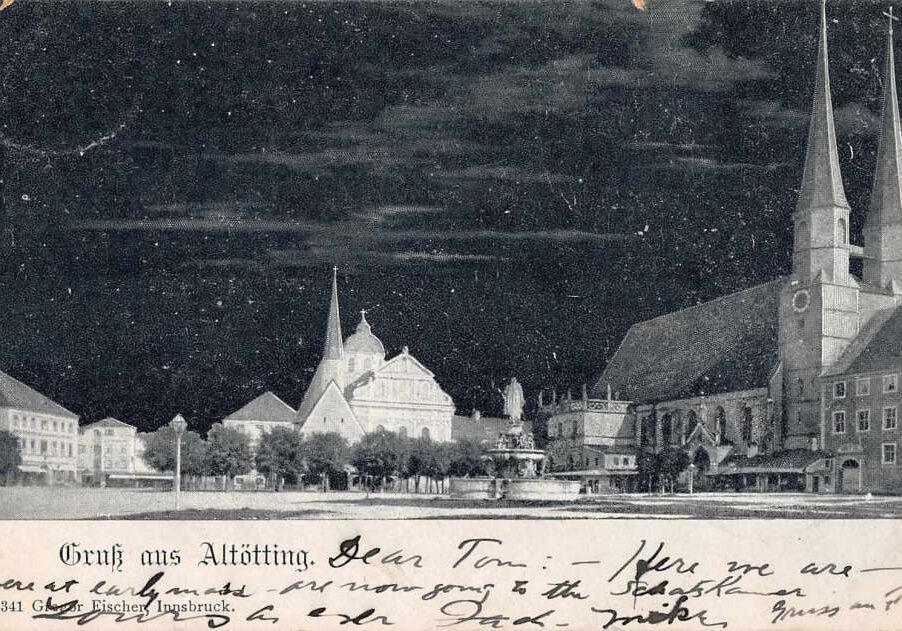 Gruß aus Altötting. Dear Tom: – Here we are –
ere at early mass – are now going to the Schatzkamer
341 Gregor Fischer, Innsbruck. Yours as ever Jack – Mike Gruss an